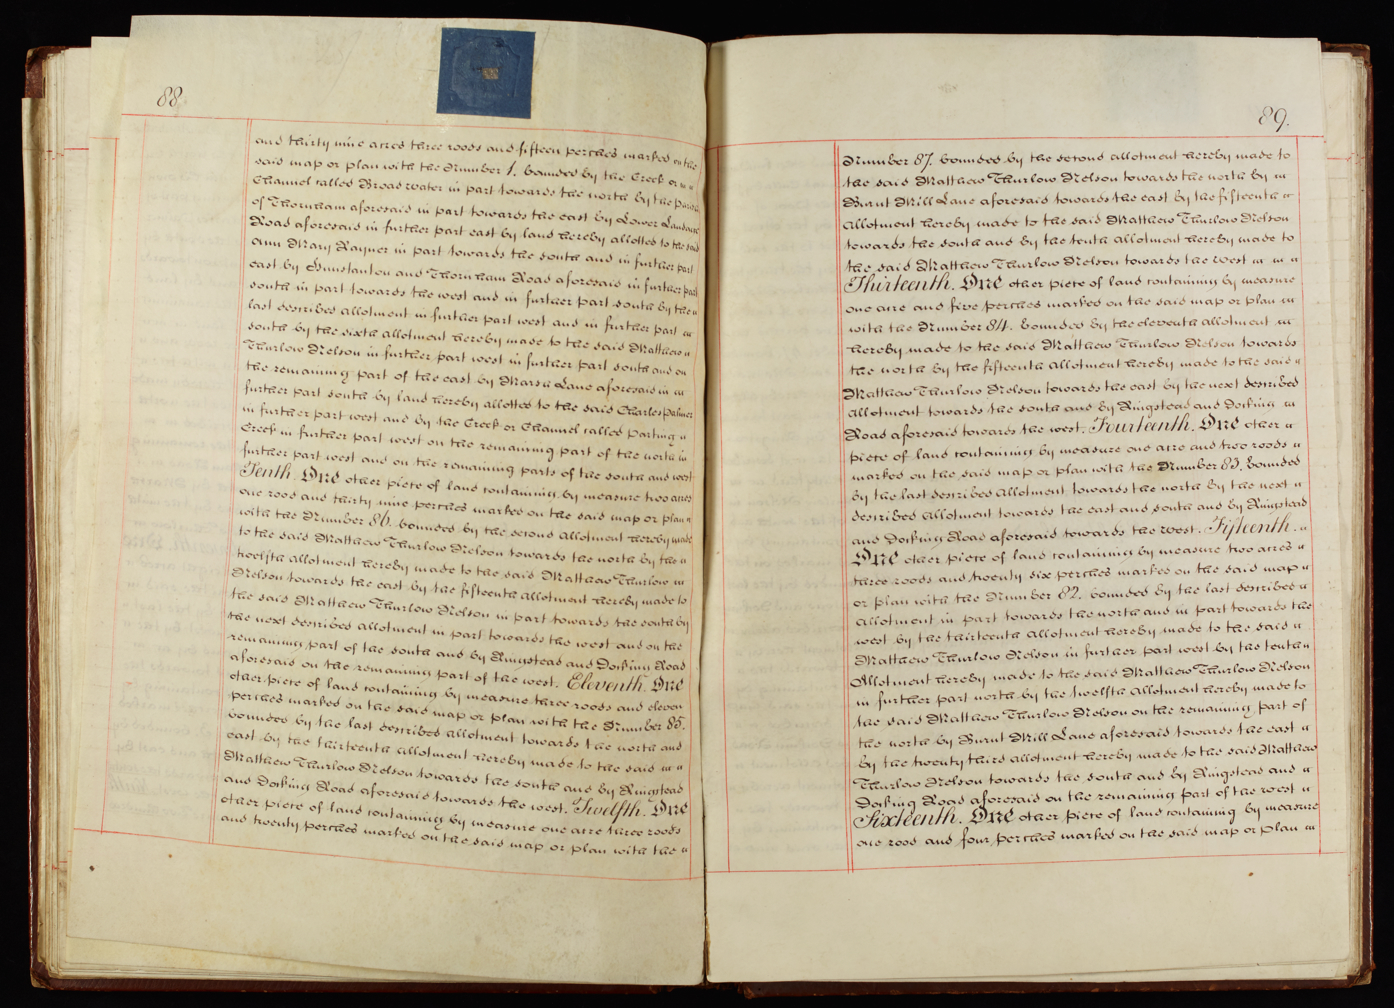 88
and thirty nine acres three roods and fifteen perches marked on the
said map or plan with the Number 1. bounded by the Creek or
Channel called Broad water in part towards the north by the Parish
of Thornham aforesaid in part towards the east by Lower Landare
Road aforesaid in further part east by land hereby allotted to the said
Ann Mary Rayner in part towards the south and in further part
east by Hunstanton and Thornham Road aforesaid in further part
south in part towards the west and in further part south by the
last described allotment in further part west and in further part
south by the sixth allotment hereby made to the said Matthew
Thurlow Nelson in further part west in further part south and on
the remaining part of the east by Marsh Lane aforesaid in
further part south by land hereby allotted to the said Charles Palmer
in further part west and by the Creek or Channel called Parting
Creek in further part west on the remaining part of the north in
further part west and on the remaining parts of the south and west
Tenth. One other piece of land containing by measure two acres
one rood and thirty nine perches marked on the said map or plan
with the Number 86. bounded by the second allotment hereby made
to the said Matthew Thurlow Nelson towards the north by the
twelfth allotment hereby made to the said Matthew Thurlow
Nelson towards the east by the fifteenth allotment hereby made to
the said Matthew Thurlow Nelson in part towards the south by
the next described allotment in part towards the west and on the
remaining part of the south and by Ringstead and Docking Road
aforesaid on the remaining part of the west. Eleventh. One
other piece of land containing by measure three roods and eleven
perches marked on the said map or plan with the Number 85.
bounded by the last described allotment towards the north and
east by the thirteenth allotment hereby made to the said
Matthew Thurlow Nelson towards the south and by Ringstead
and Docking Road aforesaid towards the west. Twelfth. One
other piece of land containing by measure one acre three roods
and twenty perches marked on the said map or plan with the
89.
Number 87. bounded by the second allotment hereby made to
the said Matthew Thurlow Nelson towards the north by
Burnt Mill Lane aforesaid towards the east by the fifteenth
allotment hereby made to the said Matthew Thurlow Nelson
towards the south and by the tenth allotment hereby made to
the said Matthew Thurlow Nelson towards the west
Thirteenth. One other piece of land containing by measure
one acre and five perches marked on the said map or plan
with the Number 84. bounded by the eleventh allotment
hereby made to the said Matthew Thurlow Nelson towards
the north by the fifteenth allotment hereby made to the said
Matthew Thurlow Nelson towards the east by the next described
allotment towards the south and by Ringstead and Docking
Road aforesaid towards the west. Fourteenth. One other
piece of land containing by measure one acre and two roods
marked on the said map or plan with the Number 83. bounded
by the last described allotment towards the north by the next
described allotment towards the east and south and by Ringstead
and Docking Road aforesaid towards the west. Fifteenth.
One other piece of land containing by measure two acres
three roods and twenty six perches marked on the said map
or plan with the Number 82. bounded by the last described
allotment in part towards the north and in part towards the
west by the thirteenth allotment hereby made to the said
Matthew Thurlow Nelson in further part west by the tenth
Allotment hereby made to the said Matthew Thurlow Nelson
in further part north by the twelfth allotment hereby made to
the said Matthew Thurlow Nelson on the remaining part of
the north by Burnt Mill Lane aforesaid towards the east
by the twenty third allotment hereby made to the said Matthew
Thurlow Nelson towards the south and by Ringstead and
Docking Road aforesaid on the remaining part of the west
Sixteenth. One other piece of land containing by measure
one rood and four perches marked on the said map or plan